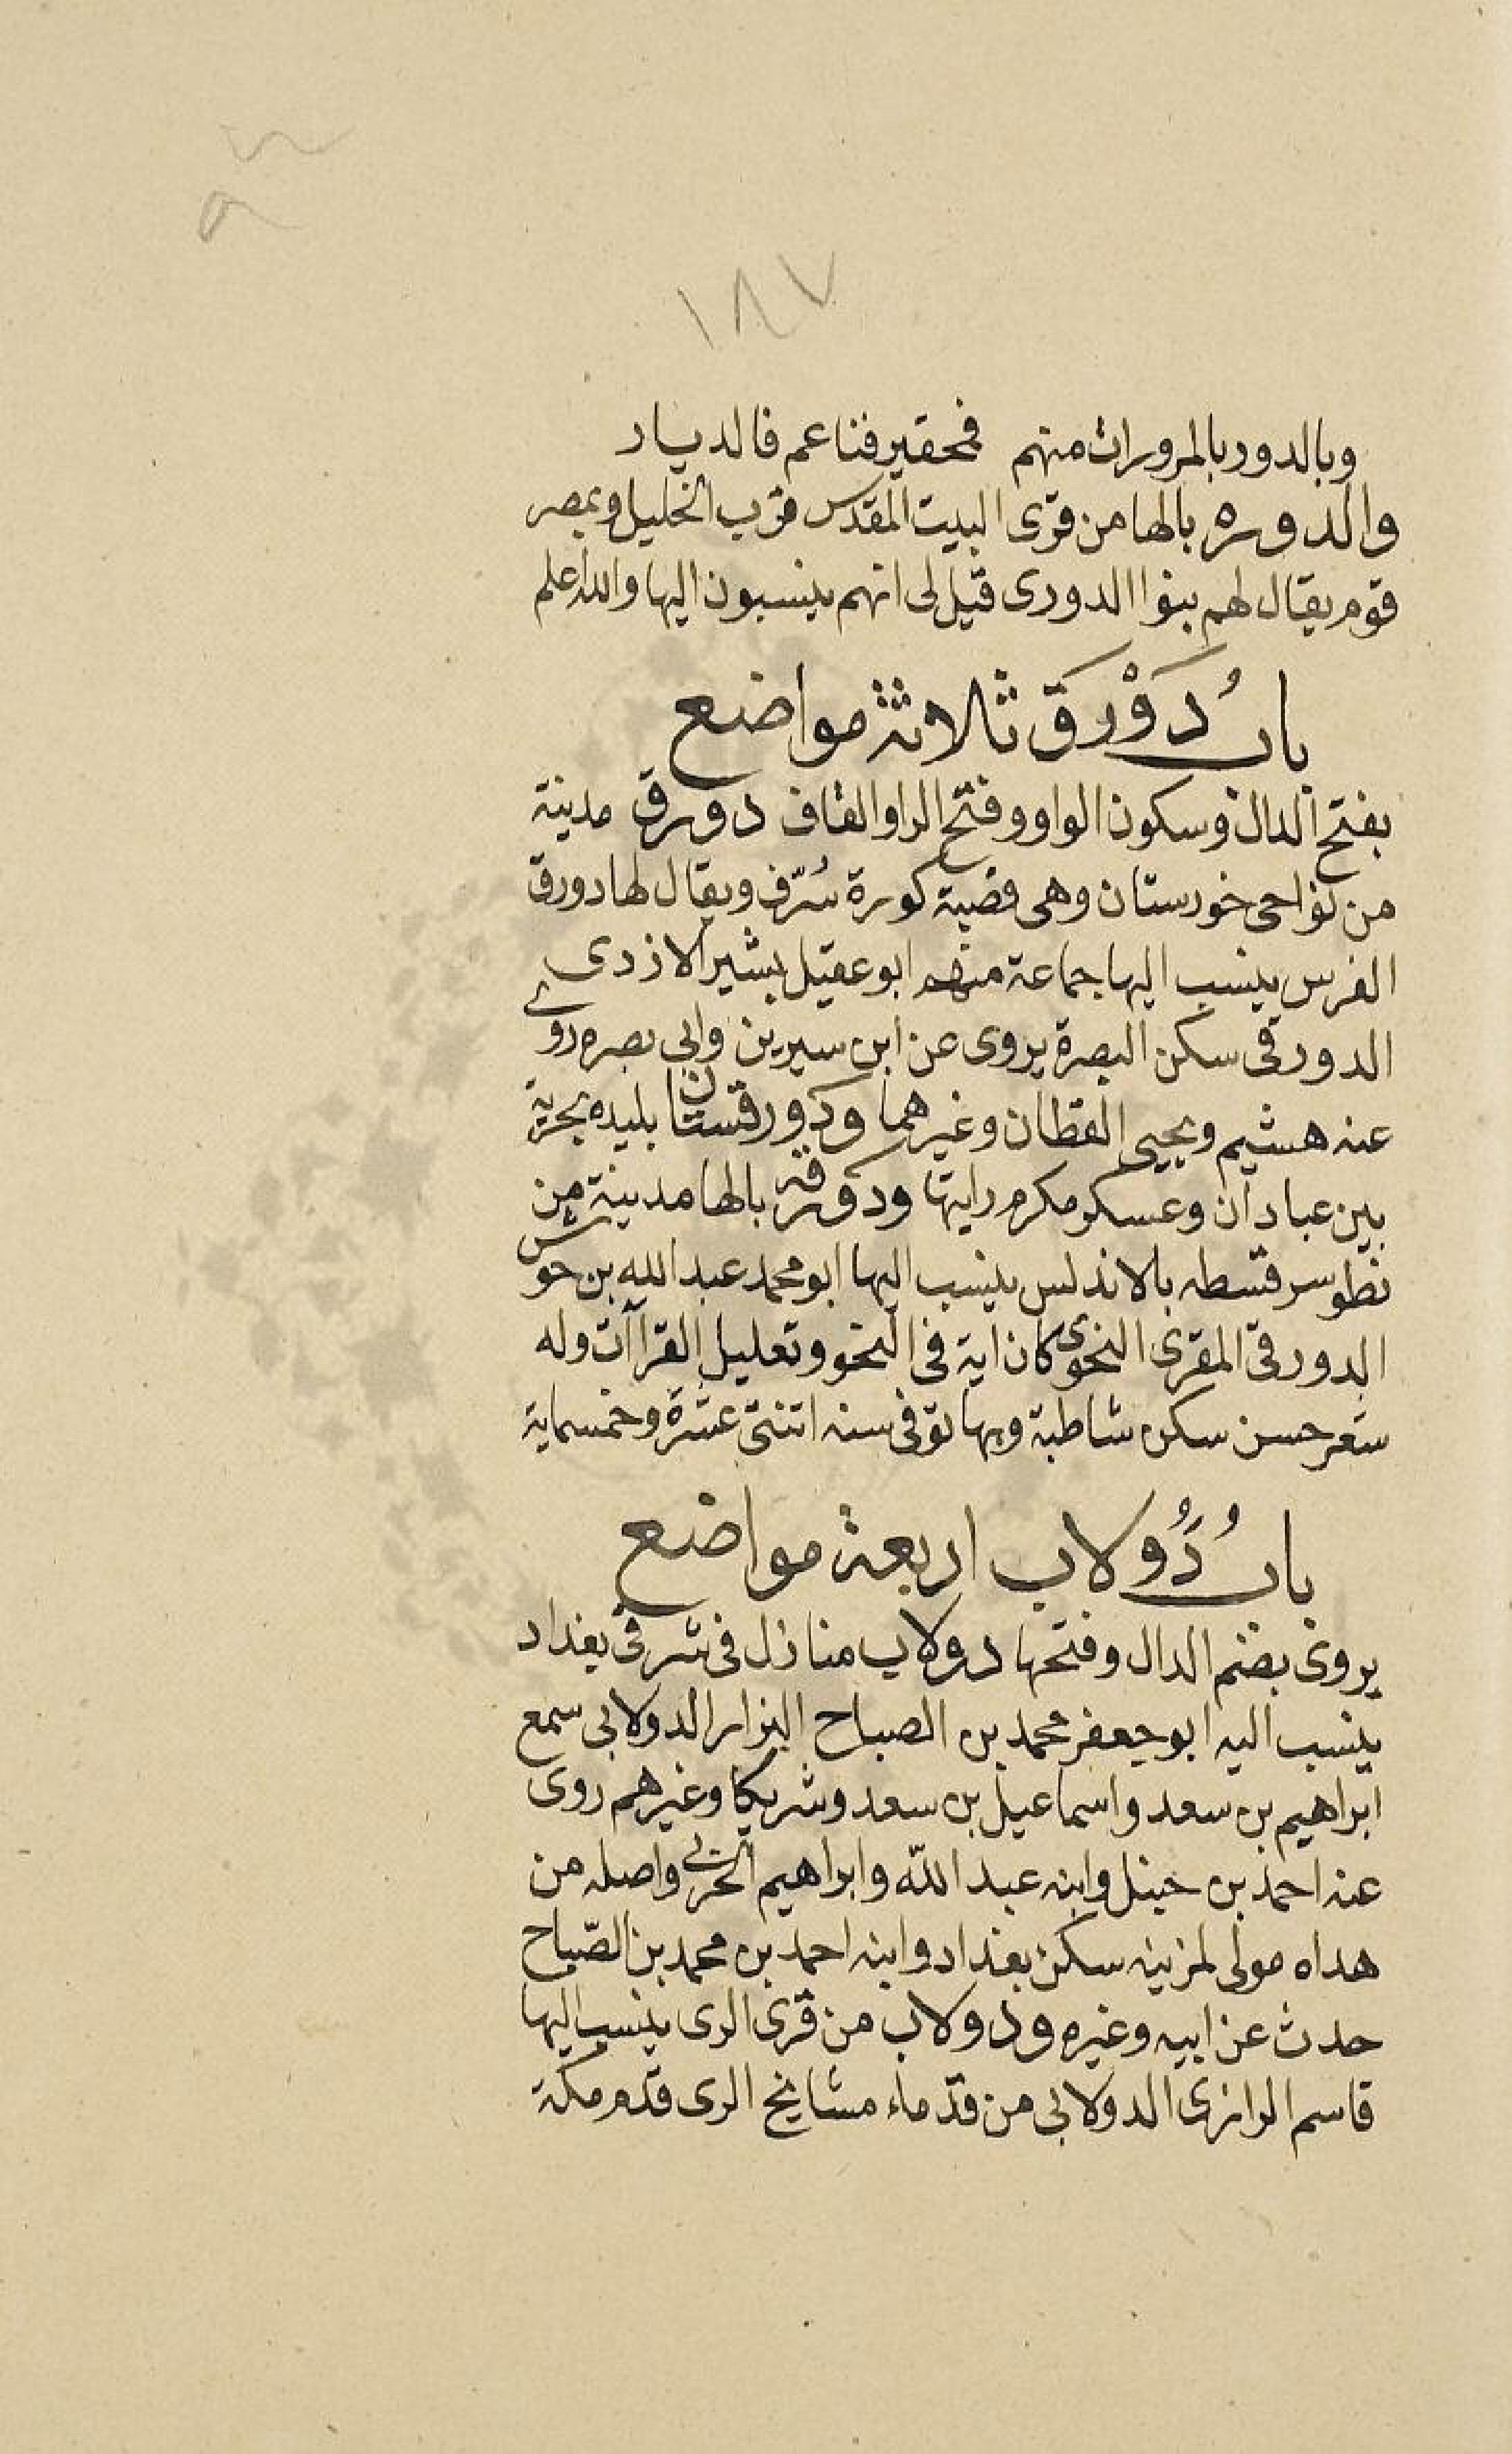 ١٨٧
وبالدور بالمرورات منهم فحقير فناعم فالديار
والدوره بالها من قرى البيت المقدس قرب الخليل وبمصر
قوم يقال لهم بنوا الدورى قيل لى انهم ينسبون اليها والله اعلم
بابُ دَوْرَق ثلاثة مواضع
بفتح الدال وسكون الواو وفتح الرا والقاف دورق مدينة
من نواحى خورستان وهى قصبة كورة سُرّق ويقال لها دورق
الفرس ينسب اليها جماعة منهم ابو عقيل بشير الازدى
الدورقى سكن البصرة يروى عن ابن سيرين وابى بصره روى
عنه هشيم ويحيى القطان وغيرهما ودورقستان بليده بحرية
بين عبادان وعسكر مكرم رايتها ودورقة بالها مدينة من
نطو سرقسطه بالاندلس ينسب اليها ابو محمد عبد الله بن حوش
الدورقى المقرى النحوى كان اية فى النحو وتعليل القراآت وله
شعر حسن سكن شاطبة وبها توفى سنه اتنتى عشرة وخمسماية
بابُ دُولاب اربعة مواضع
يروى بضم الدال وفتحها دولاب منازل فى شرقى بغداد
ينسب اليه ابو جعفر محمد بن الصباح البزار الدولابى سمع
ابراهيم بن سعد واسماعيل بن سعد وشريكا وغيرهم روى
عنه احمد بن حنبل وابنه عبد الله وابراهيم الحربى واصله من
هداه مولى لمزينه سكن بغداد وابنه احمد بن محمد بن الصّباح
حدث عن ابيه وغيره ودولاب من قرى الرى ينسب اليها
قاسم الرازى الدولابى من قدماء مشايخ الرى قدم مكة